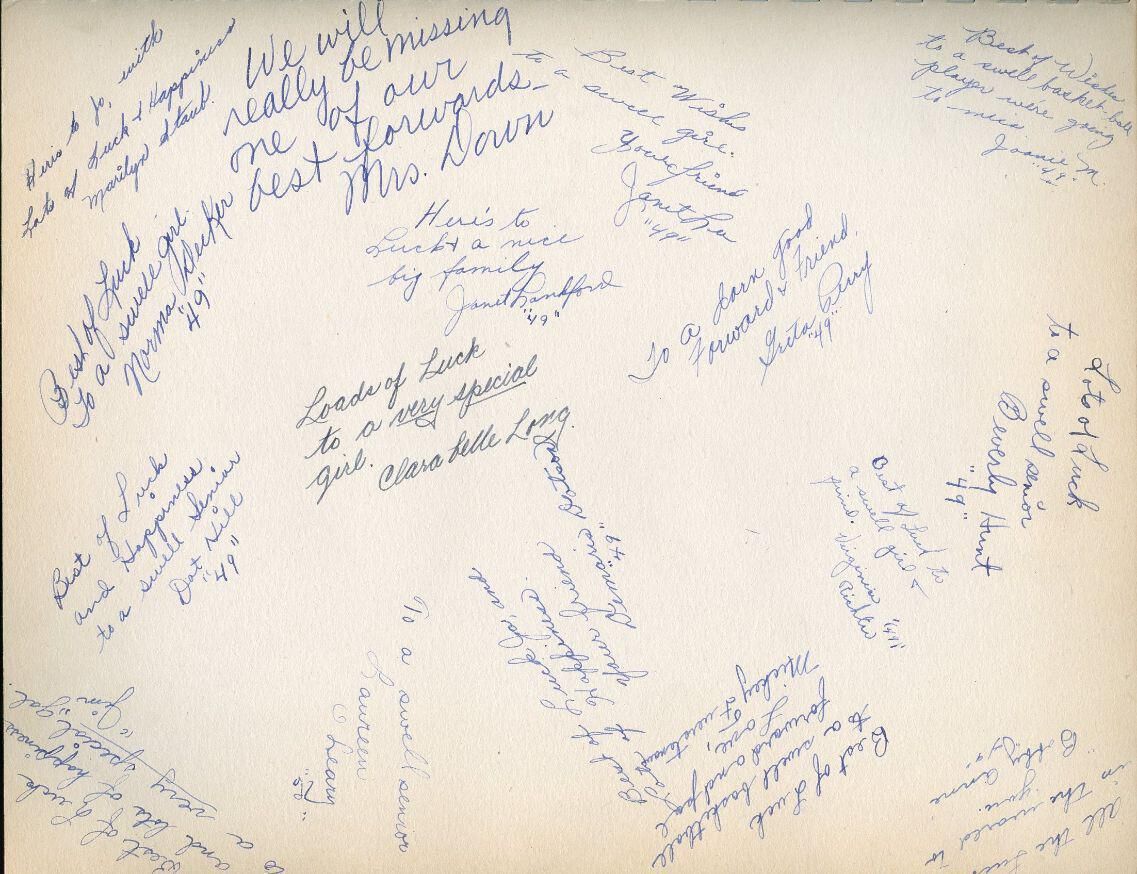 Here's to Jo, with
Lots of Luck & Happiness
Marilyn
We will
really be missing
one of our
best forwards_
Mrs. Dorn
Best Wishes
to a sweet girl.
Your friend
Janet Lee
"49"
Best of Wishes
to a swell basket-ball
player we're going
to miss
Joanie M.
"49"
Best of Luck
to a swell girl.
Norma Decker
"49"
Here's to
Luck & a nice
big family
Janet Sandford
"49"
To a darn good
Forward & Friend,
Greta Perry
"49"
Loads of Luck
to a very special
girl.
Clara belle Long.
Lots of Luck
to a swell senior
Beverly Hunt
"49"
Best of Luck to
a swell girl &
friend.
Virginia
Richter "49"
Best of Luck
and Happiness
to a swell Senior
Dot Hill
"49"
Best of Luck Jo, and
Lots of Happiness.
Your friend
"49"
To a swell senior
Laureen
O'Leary
Best of Luck
to a swell basketball
forward and pal
Love,
Mickey
Best of Luck
and lots of happiness
to a very special gal.
"Jim"
all the luck
in the world to
you.
Bobby Anne